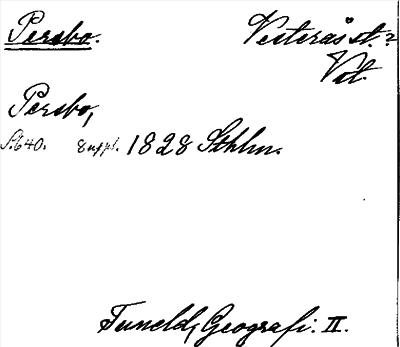 Persbo. Vesterås st.?
Vstl.
Persbo,
S. 640. Suppl. 1828 Sthlm.
Tuneld, Geografi. II.